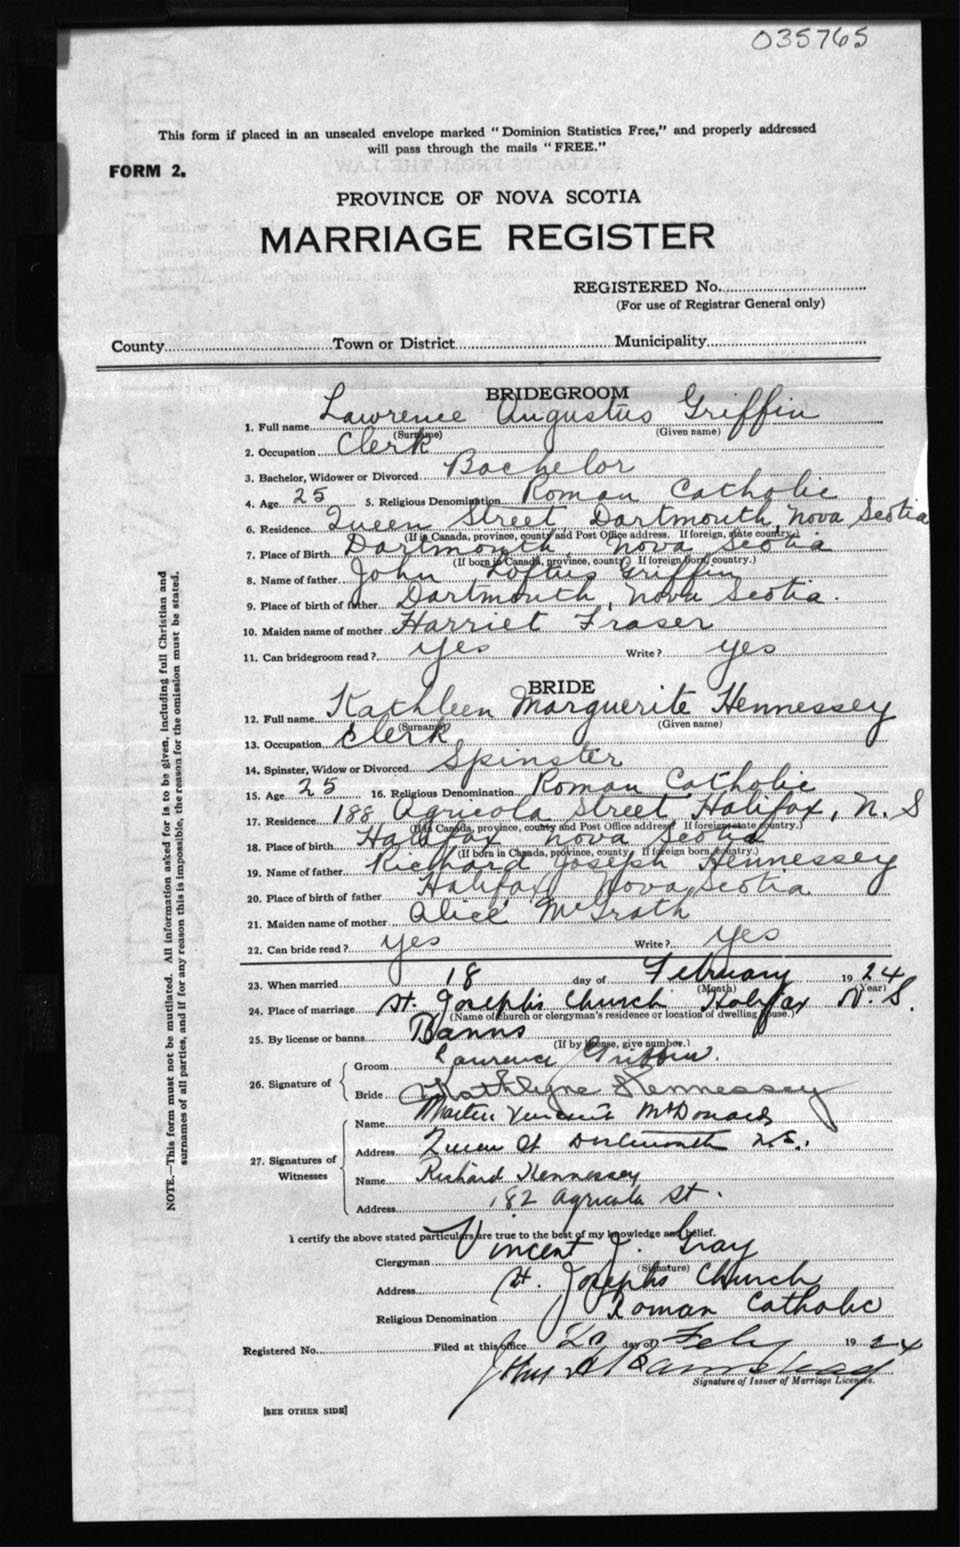 035765
This form if placed in an unsealed envelope marked "Dominion Statistics Free," and properly addressed
will pass through the mails "FREE."
FORM 2.
PROVINCE OF NOVA SCOTIA
MARRIAGE REGISTER
REGISTERED No.
(For use of Registrar General only)
County Town or District Municipality
BRIDEGROOM
1. Full name Lawrence Augustus Griffin
(Surname) (Given name)
2. Occupation Clerk
3. Bachelor, Widower or Divorced Bachelor
4. Age 25 5. Religious Denomination Roman Catholic
6. Residence Queen Street, Dartmouth, Nova Scotia
(If in Canada, province, county and Post Office address. If foreign, state country.)
7. Place of Birth Dartmouth, Nova Scotia
(If born in Canada, province, county. If foreign born, country.)
8. Name of father John Loftus Griffin
9. Place of birth of father Dartmouth, Nova Scotia.
10. Maiden name of mother Harriet Fraser
11. Can bridegroom read? yes Write? yes
BRIDE
12. Full name Kathleen Marguerite Hennessey
(Surname) (Given name)
13. Occupation Clerk
14. Spinster, Widow or Divorced Spinster
15. Age 25 16. Religious Denomination Roman Catholic
17. Residence 188 Agricola Street, Halifax, N.S
(If in Canada, province, county and Post Office address. If foreign state country.)
18. Place of birth Halifax Nova Scotia
(If born in Canada, province, county. If foreign born, country.)
19. Name of father Richard Joseph Hennessey
20. Place of birth of father Halifax, Nova Scotia
21. Maiden name of mother Alice McGrath
22. Can bride read? yes Write? yes
23. When married 18 day of February 1924
(Month) (Year)
24. Place of marriage St. Joseph's Church Halifax N.S.
(Name of church or clergyman's residence or location of dwelling house.)
25. By license or banns Banns
(If by license, give number.)
26. Signature of Groom Lawrence Griffin.
Bride Kathlyne Hennessey
27. Signatures of Witnesses
Name Martin Vincent McDonald
Address Queen St Dartmouth N.S.
Name Richard Hennessey
Address 182 Agricola St.
I certify the above stated particulars are true to the best of my knowledge and belief.
Clergyman Vincent J. Gray
(Signature)
Address St. Josephs Church
Religious Denomination Roman Catholic
Registered No. Filed at this office day of Feby 1924
Signature of Issuer of Marriage Licenses.
[SEE OTHER SIDE]
NOTE.—This form must not be mutilated. All information asked for is to be given, including full Christian and
surnames of all parties, and if for any reason this is impossible, the reason for the omission must be stated.